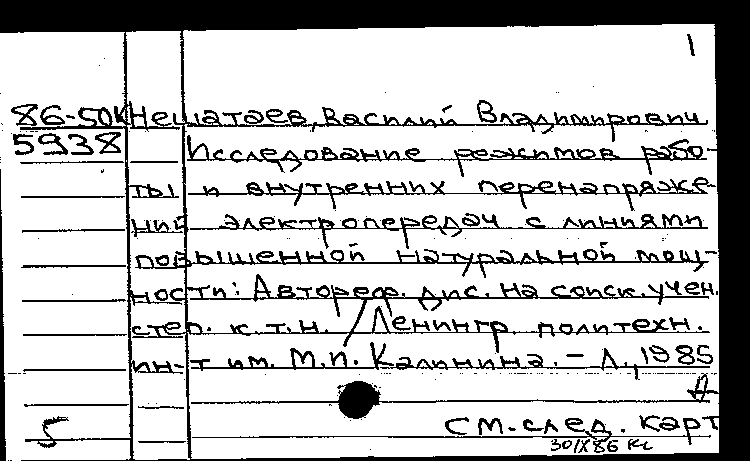 1
86-50К Нешатаев, Василий Владимирович
5938 Исследование режимов рабо-
ты и внутренних перенапряже-
ний электропередач с линиями
повышенной натуральной мощ-
ности: Автореф. дис. на соиск. учен.
степ. к.т.н. / Ленингр. политехн.
ин-т им. М.И. Калинина. – Л., 1985
5 См. след. карт
30/X86